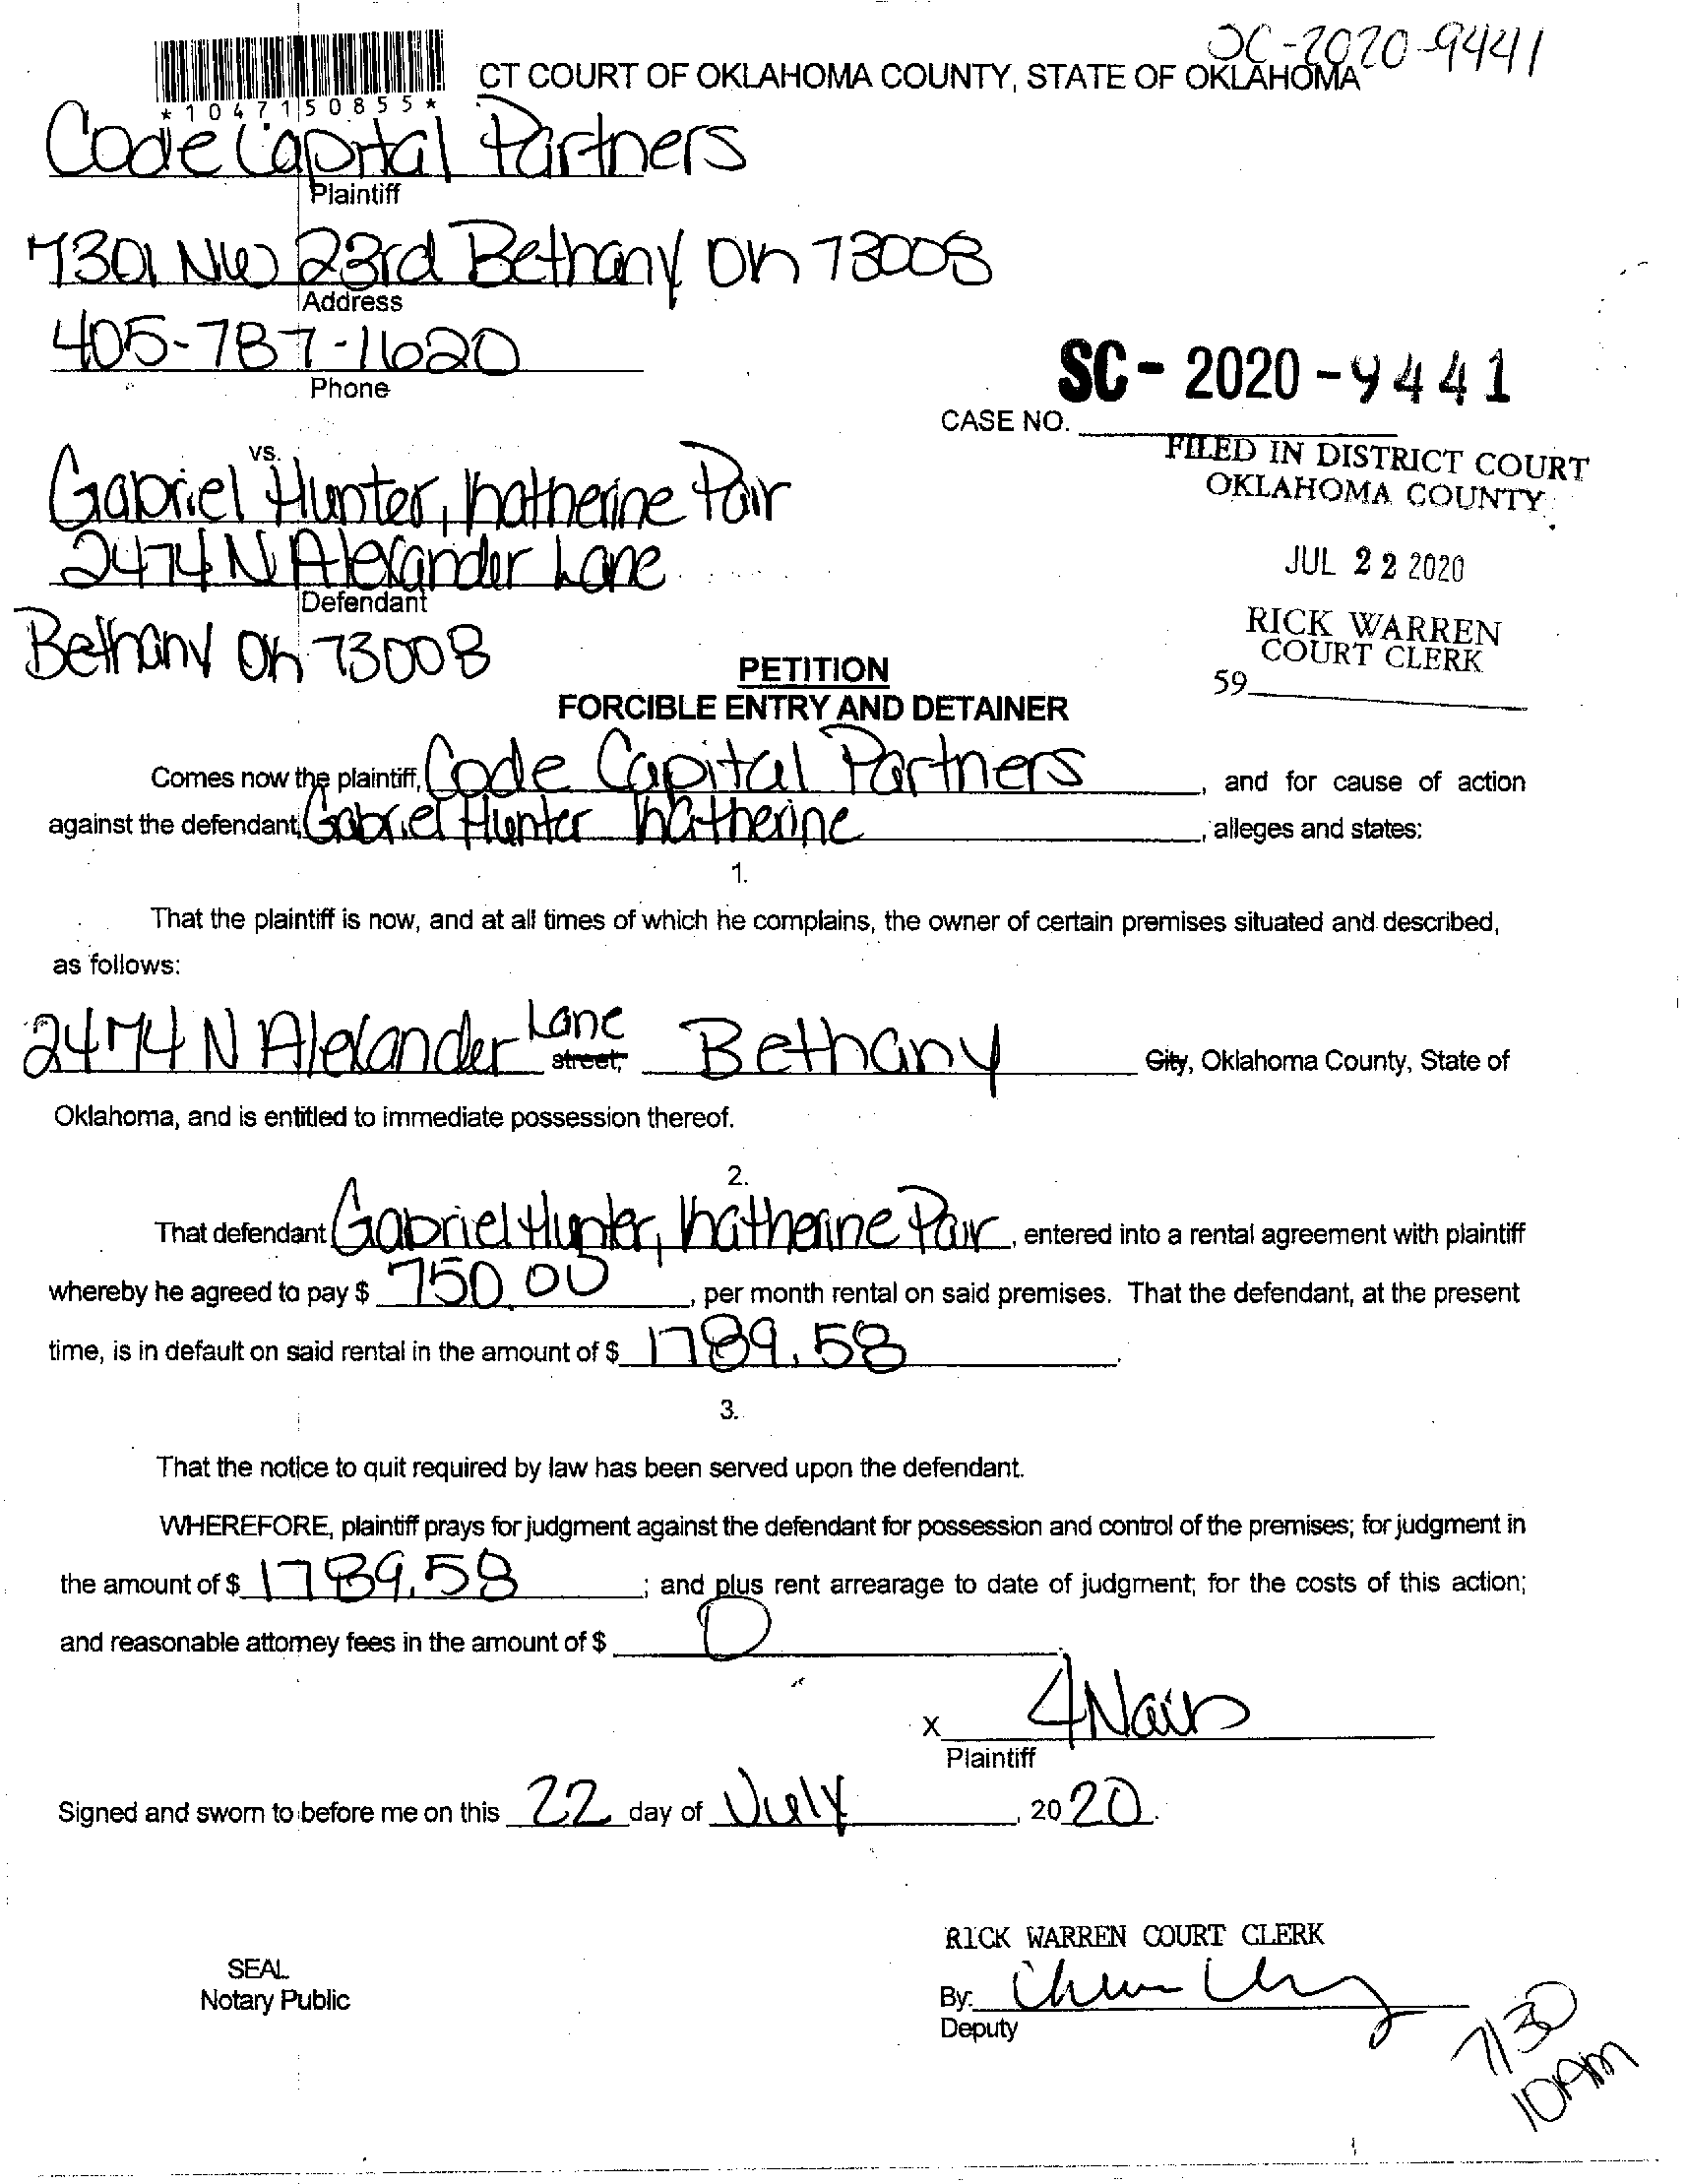 SC-2020-9441
CT COURT OF OKLAHOMA COUNTY, STATE OF OKLAHOMA
*1047150855*
Code Capital Partners
Plaintiff
7301 NW 23rd Bethany OK 73008
Address
405-787-1620
Phone
SC - 2020 - 9441
CASE NO.
FILED IN DISTRICT COURT
OKLAHOMA COUNTY
vs.
Gabriel Hunter, Katherine Pair
2474 N Alexander Lane
Defendant
Bethany OK 73008
JUL 22 2020
RICK WARREN
COURT CLERK
59
PETITION
FORCIBLE ENTRY AND DETAINER
Comes now the plaintiff, Code Capital Partners, and for cause of action
against the defendant, Gabriel Hunter Katherine, alleges and states:
1.
That the plaintiff is now, and at all times of which he complains, the owner of certain premises situated and described,
as follows:
2474 N Alexander Lane street, Bethany City, Oklahoma County, State of
Oklahoma, and is entitled to immediate possession thereof.
2.
That defendant Gabriel Hunter, Katherine Pair, entered into a rental agreement with plaintiff
whereby he agreed to pay $ 750.00, per month rental on said premises. That the defendant, at the present
time, is in default on said rental in the amount of $ 1789.58.
3.
That the notice to quit required by law has been served upon the defendant.
WHEREFORE, plaintiff prays for judgment against the defendant for possession and control of the premises; for judgment in
the amount of $ 1789.58; and plus rent arrearage to date of judgment; for the costs of this action;
and reasonable attorney fees in the amount of $ 0.
X
Plaintiff
Signed and sworn to before me on this 22 day of July, 2020.
RICK WARREN COURT CLERK
SEAL
Notary Public
By:
Deputy
7/30
10AM